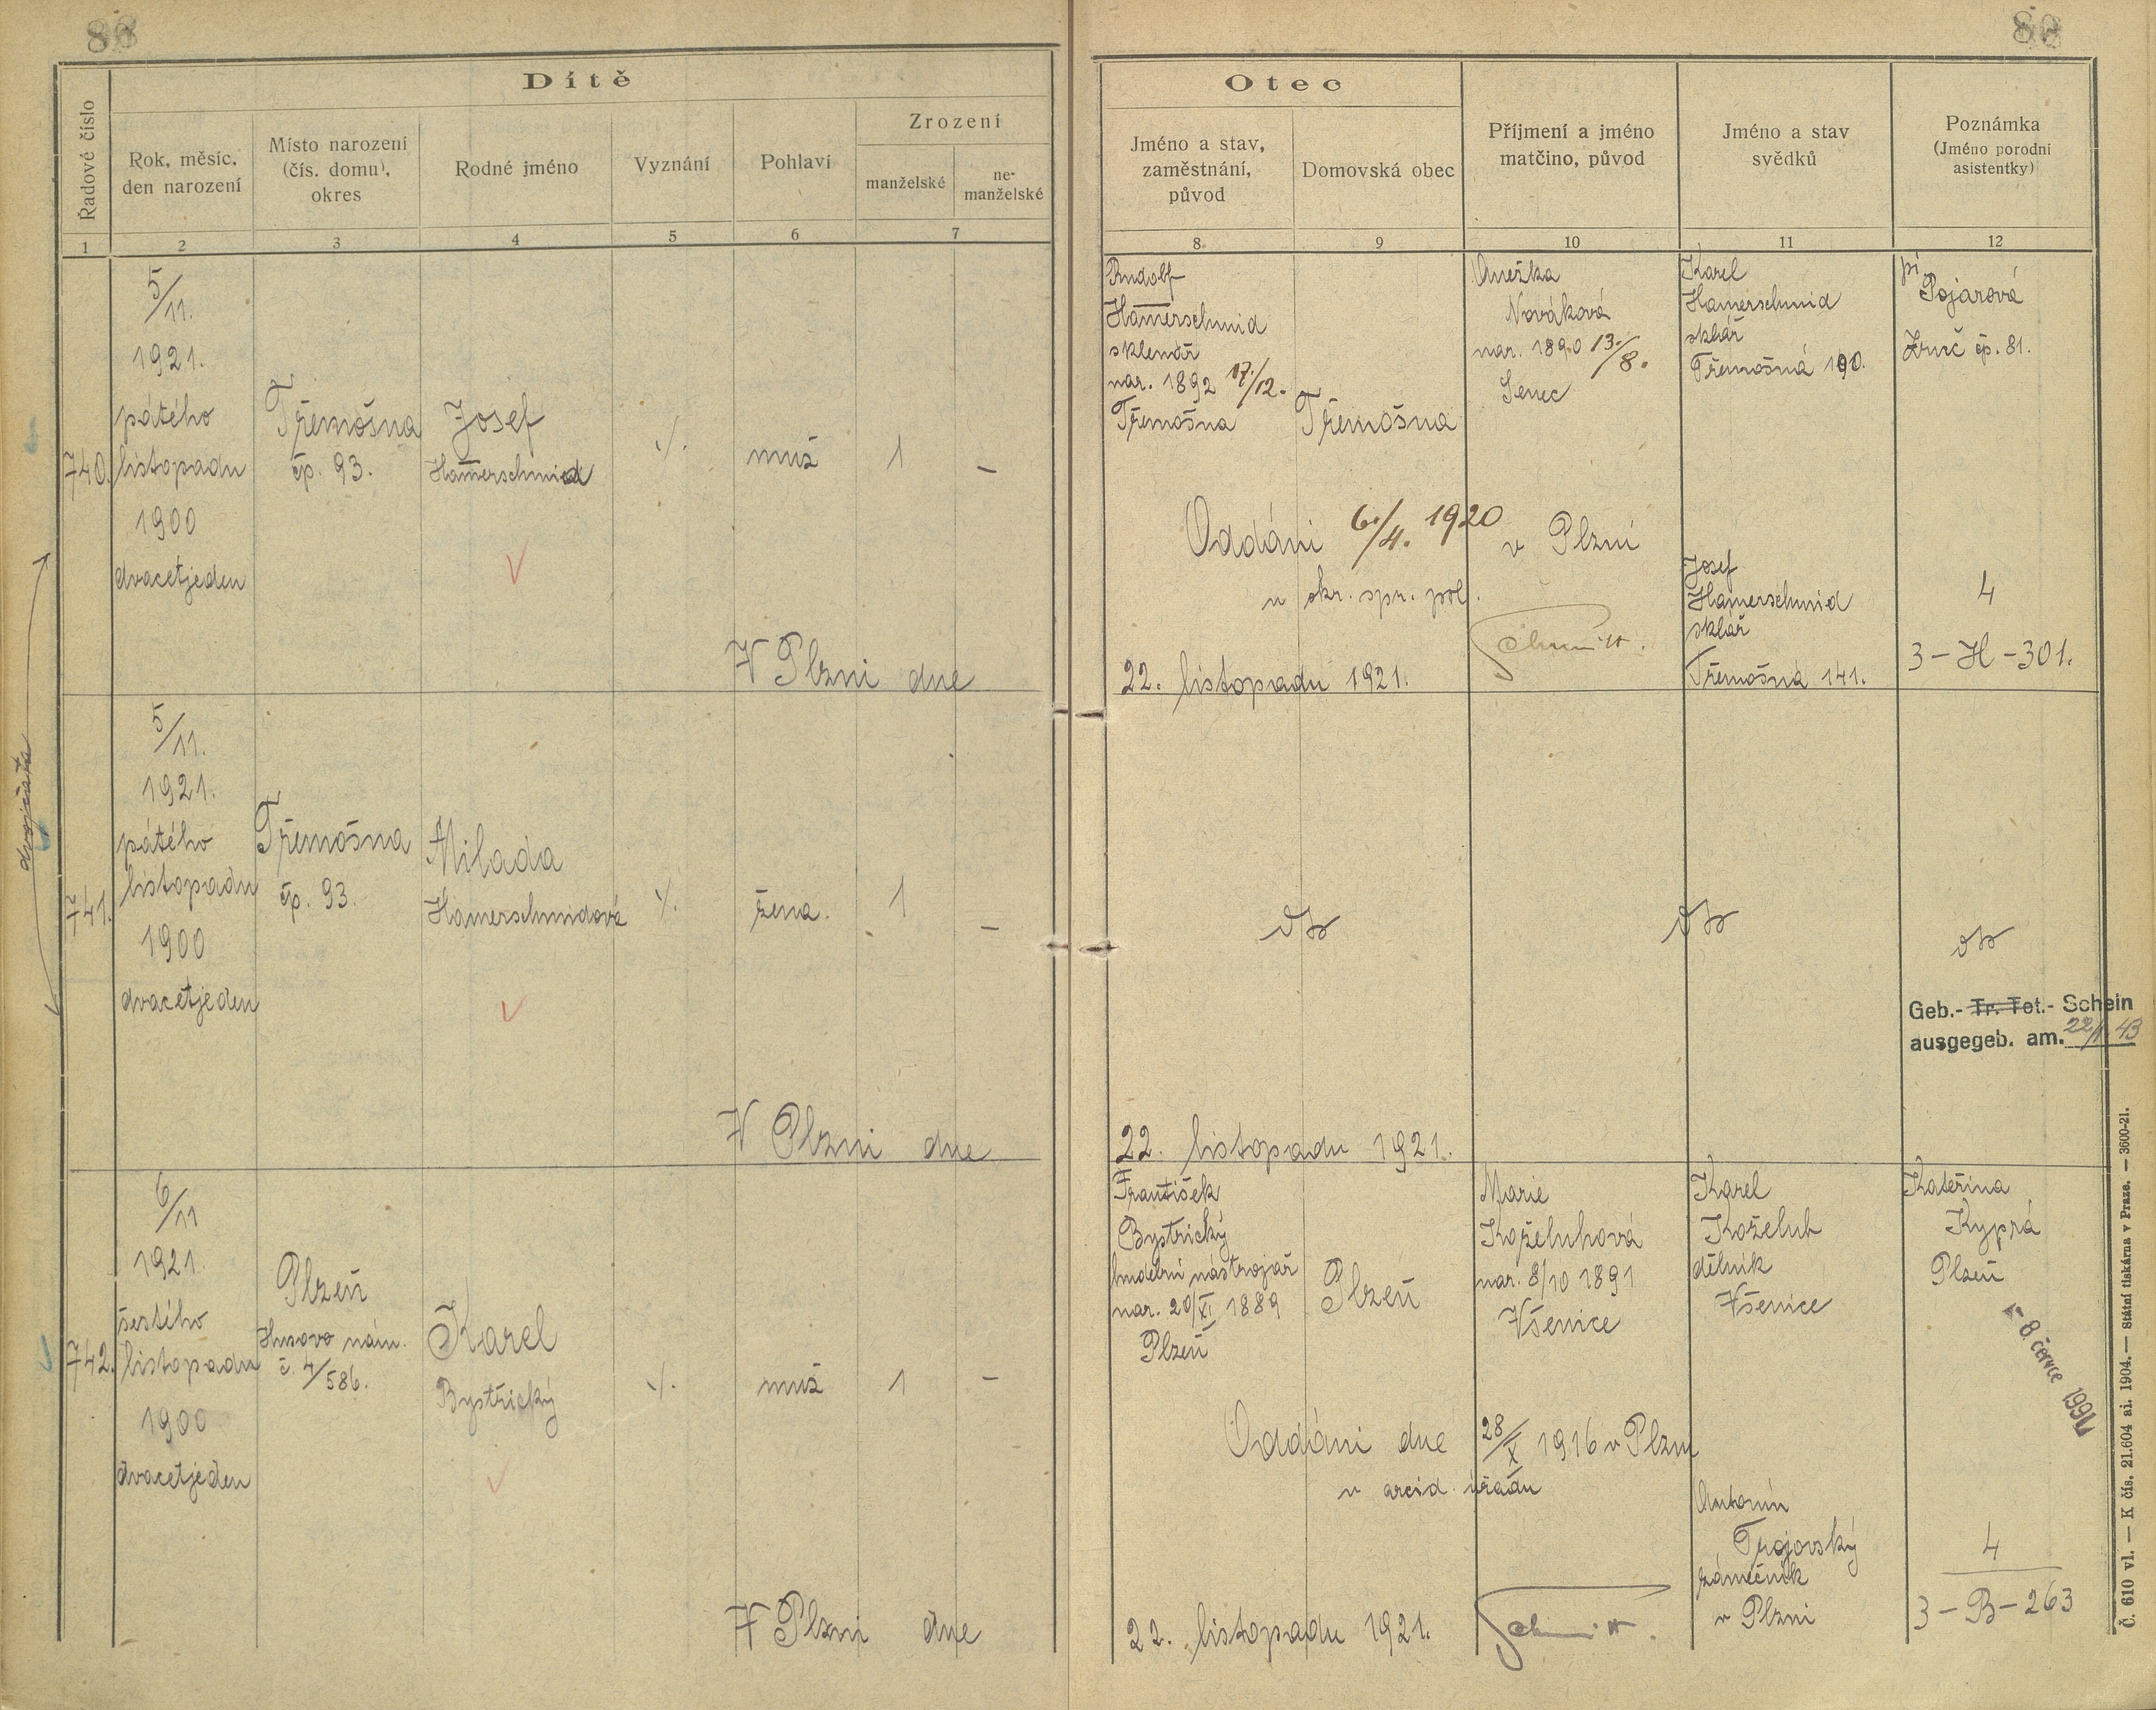 88
Dítě
Řadové číslo
Rok, měsíc,
den narození
Místo narození
(čís. domu),
okres
Rodné jméno
Vyznání
Pohlaví
Zrození
manželské
ne-
manželské
1
2
3
4
5
6
7
740.
5/11.
1921.
pátého
listopadu
1900
dvacetjeden
Třemošna
čp. 93.
Josef
Hamerschmid
·/.
muž
1
–
V Plzni dne
dvojčata
741.
5/11.
1921.
pátého
listopadu
1900
dvacetjeden
Třemošna
čp. 93.
Milada
Hamerschmidová
·/.
žena.
1
–
V Plzni dne
742.
6/11
1921.
šestého
listopadu
1900
dvacetjeden
Plzeň
Husovo nám.
č. 4/586.
Karel
Bystřický
·/.
muž
1
–
V Plzni dne
80
Otec
Jméno a stav,
zaměstnání,
původ
Domovská obec
Příjmení a jméno
matčino, původ
Jméno a stav
svědků
Poznámka
(Jméno porodní
asistentky)
8
9
10
11
12
Rudolf
Hamerschmid
sklenář
nar. 1892 17./12.
Třemošna
Třemošna
Anežka
Nováková
nar. 1890 13./8.
Senec
Karel
Hamerschmid
sklář
Třemošná 190.
pí
Pojarová
Zruč čp. 81.
Oddáni 6./4. 1920 v Plzni
u okr. spr. pol.
Josef
Hamerschmid
sklář
Třemošná 141.
4
3-H-301.
22. listopadu 1921.
Schmitt.
Geb.- Tr. Tot.- Schein
ausgegeb. am. 22/1. 43
22. listopadu 1921.
František
Bystřický
hudební nástrojař
nar. 20/XI. 1889
Plzeň
Plzeň
Marie
Koželuhová
nar. 8/10 1891
Všenice
Karel
Koželuh
dělník
Všenice
Kateřina
Kyprá
Plzeň
- 8. července 1991
Oddáni dne 28/X 1916 v Plzni
v arcid. úřadu
Antonín
Trojovský
zámečník
v Plzni
4
3-B-263
22. listopadu 1921.
Schmitt.
Č. 610 vl. — K čís. 21.604 ai. 1904. — Státní tiskárna v Praze. — 3600-21.